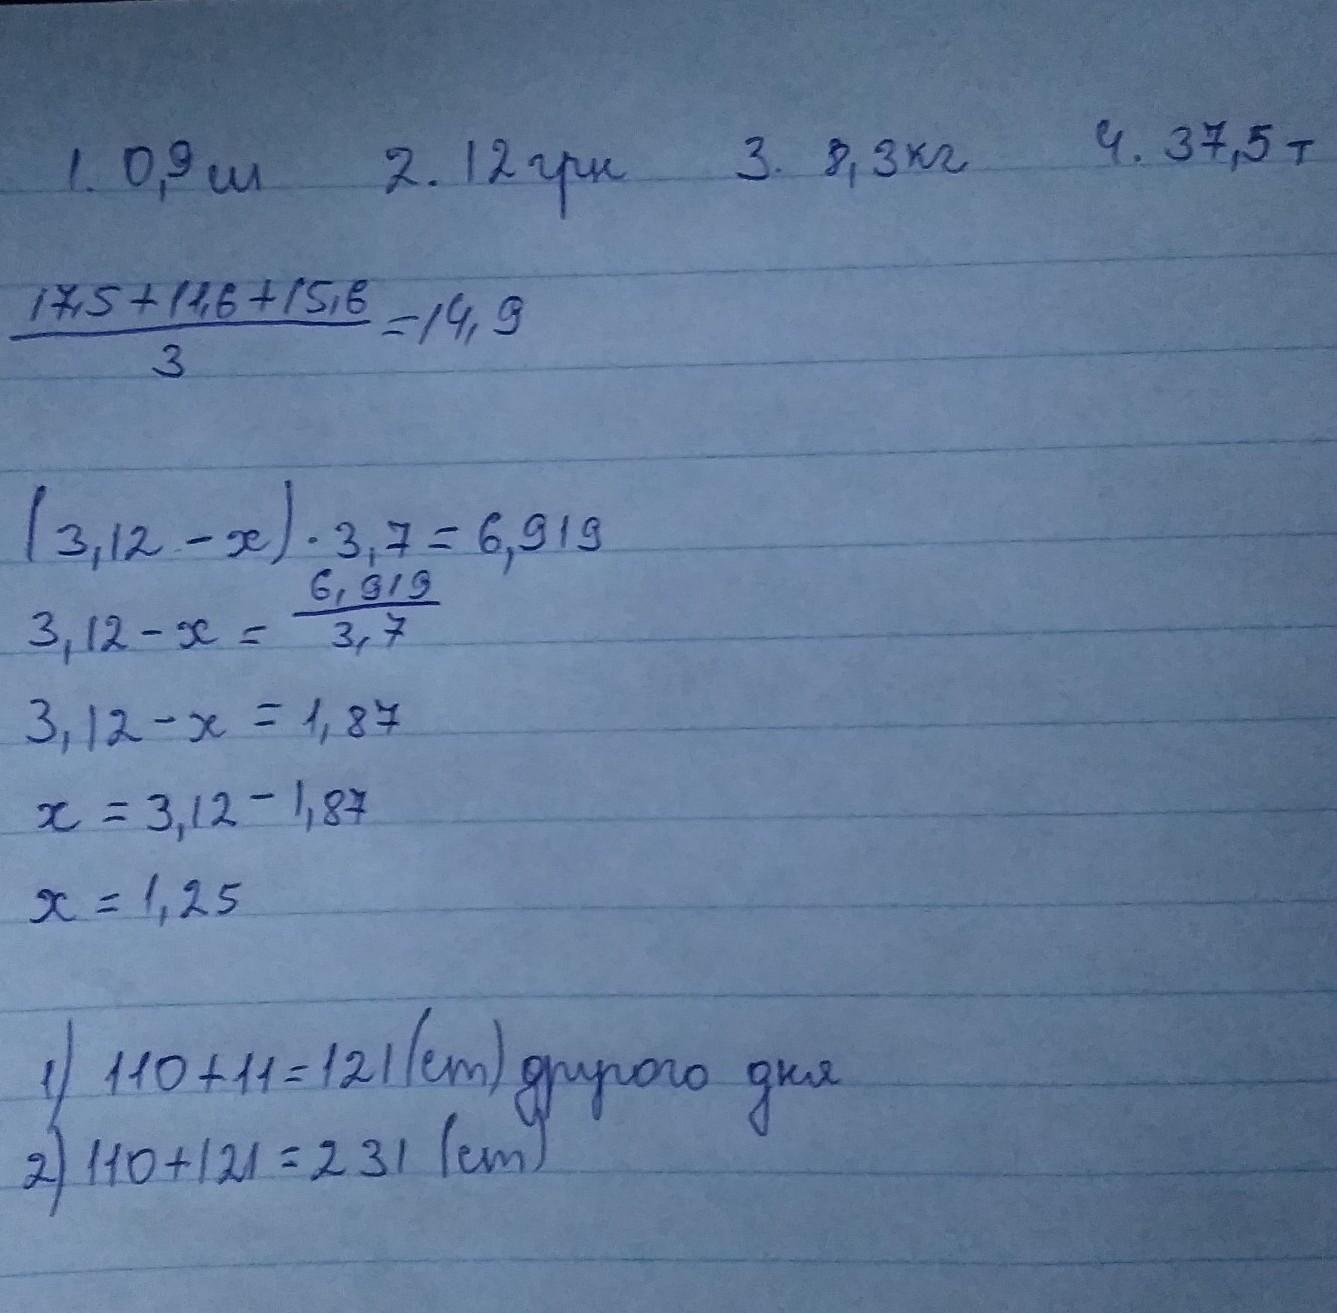 1. 0,9 м 2. 12 грн 3. 8,3 кг 4. 37,5 т
17,5+11,6+15,6
=14,9
3
(3,12 - x) · 3,7 = 6,919
3,12 - x = 6,919
3,7
3,12 - x = 1,87
x = 3,12 - 1,87
x = 1,25
1) 110+11=121 (ст) другого дня
2) 110+121=231 (ст)